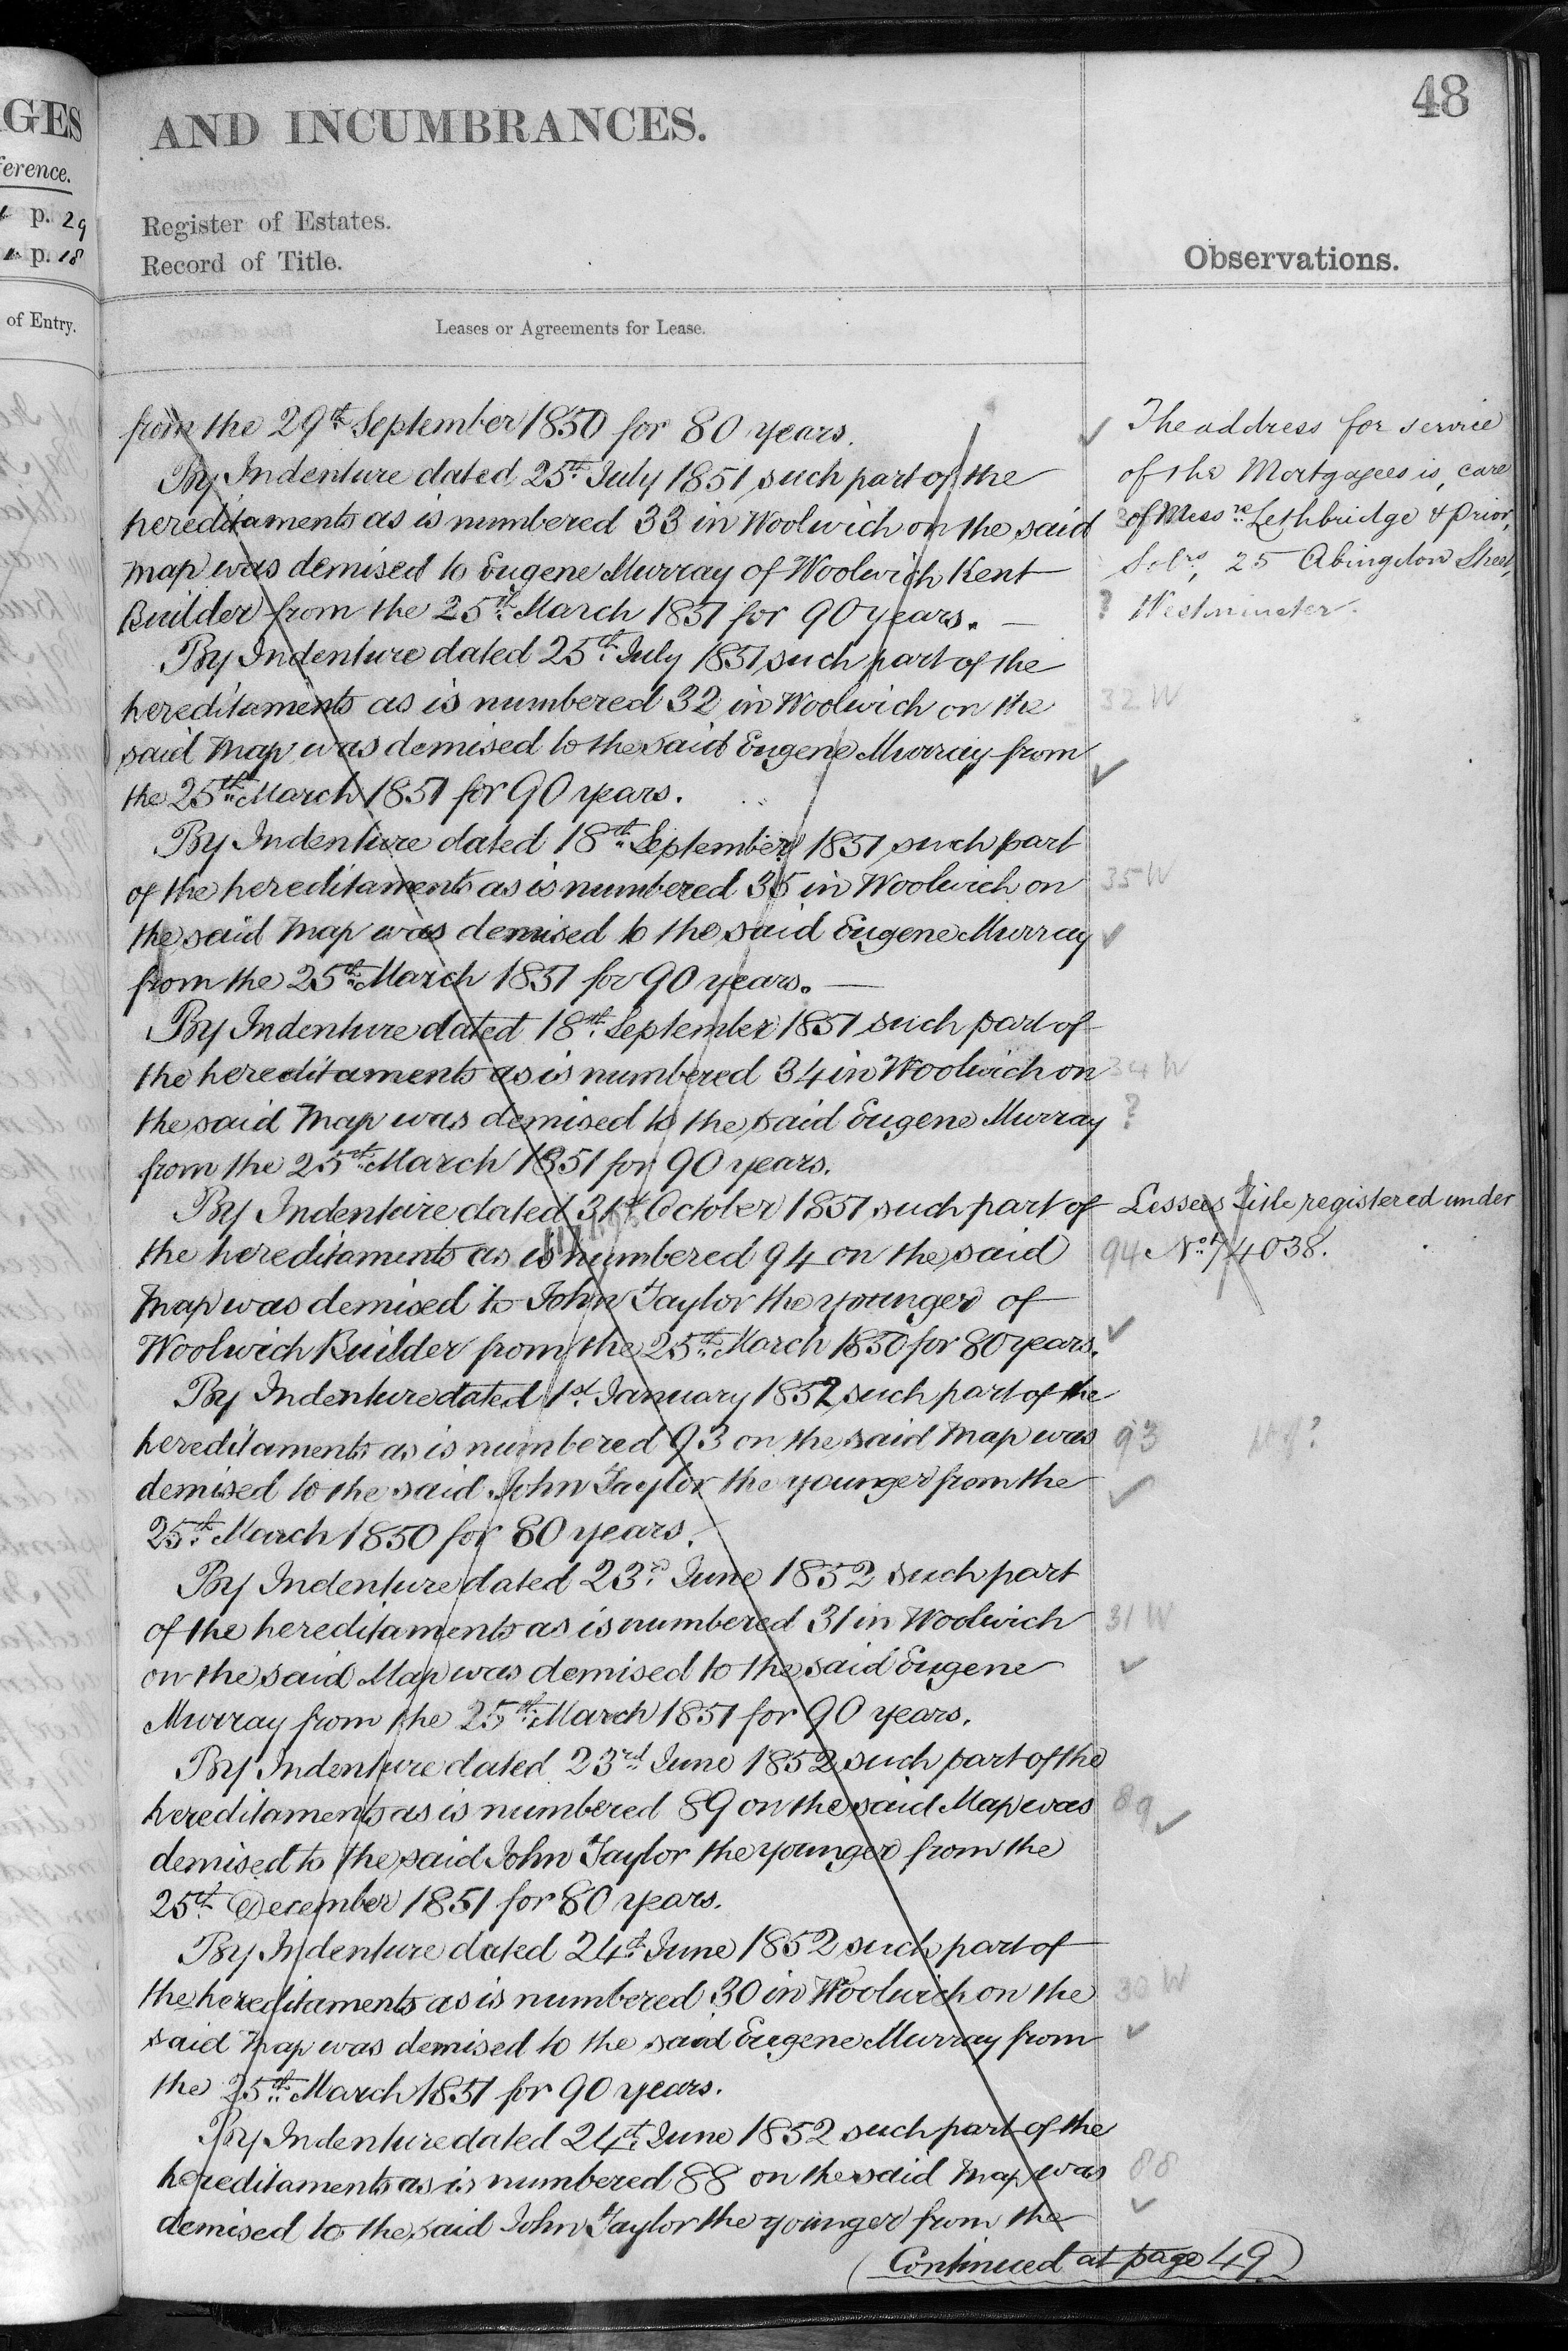 48
GES
AND INCUMBRANCES.
ference.
p. 29
p. 18
Register of Estates.
Record of Title.
Observations.
of Entry.
Leases or Agreements for Lease.
from the 29th September 1850 for 80 years.
By Indenture dated 25th July 1851 such part of the
hereditaments as is numbered 33 in Woolwich on the said
map was demised to Eugene Murray of Woolwich Kent
Builder from the 25th March 1851 for 90 years. —
By Indenture dated 25th July 1851 such part of the
hereditaments as is numbered 32 in Woolwich on the
said Map was demised to the said Eugene Murray from
the 25th March 1851 for 90 years.
By Indenture dated 18th September 1851 such part
of the hereditaments as is numbered 35 in Woolwich on
the said Map was demised to the said Eugene Murray
from the 25th March 1851 for 90 years. —
By Indenture dated 18th September 1851 such part of
the hereditaments as is numbered 34 in Woolwich on
the said Map was demised to the said Eugene Murray
from the 25th March 1851 for 90 years.
By Indenture dated 31st October 1851 such part of
the hereditaments as is numbered 94 on the said
Map was demised to John Taylor the younger of
Woolwich Builder from the 25th March 1850 for 80 years.
By Indenture dated 1st January 1852 such part of the
hereditaments as is numbered 93 on the said Map was
demised to the said John Taylor the younger from the
25th March 1850 for 80 years.
By Indenture dated 23rd June 1852 such part
of the hereditaments as is numbered 31 in Woolwich
on the said Map was demised to the said Eugene
Murray from the 25th March 1851 for 90 years.
By Indenture dated 23rd June 1852 such part of the
hereditaments as is numbered 89 on the said Map was
demised to the said John Taylor the younger from the
25th December 1851 for 80 years.
By Indenture dated 24th June 1852 such part of
the hereditaments as is numbered 30 in Woolwich on the
said Map was demised to the said Eugene Murray from
the 25th March 1851 for 90 years.
By Indenture dated 24th June 1852 such part of the
hereditaments as is numbered 88 on the said Map was
demised to the said John Taylor the younger from the
(Continued at page 49)
✓ The address for service
of the Mortgagees is, care
of Messrs Lethbridge & Prior,
Solrs, 25 Abingdon Street,
? Westminster.
32 W
✓
35 W
✓
34 W
?
Lessees Title registered under
94 No. 74038.
✓
93
✓
31 W
✓
89 ✓
30 W
✓
88
✓